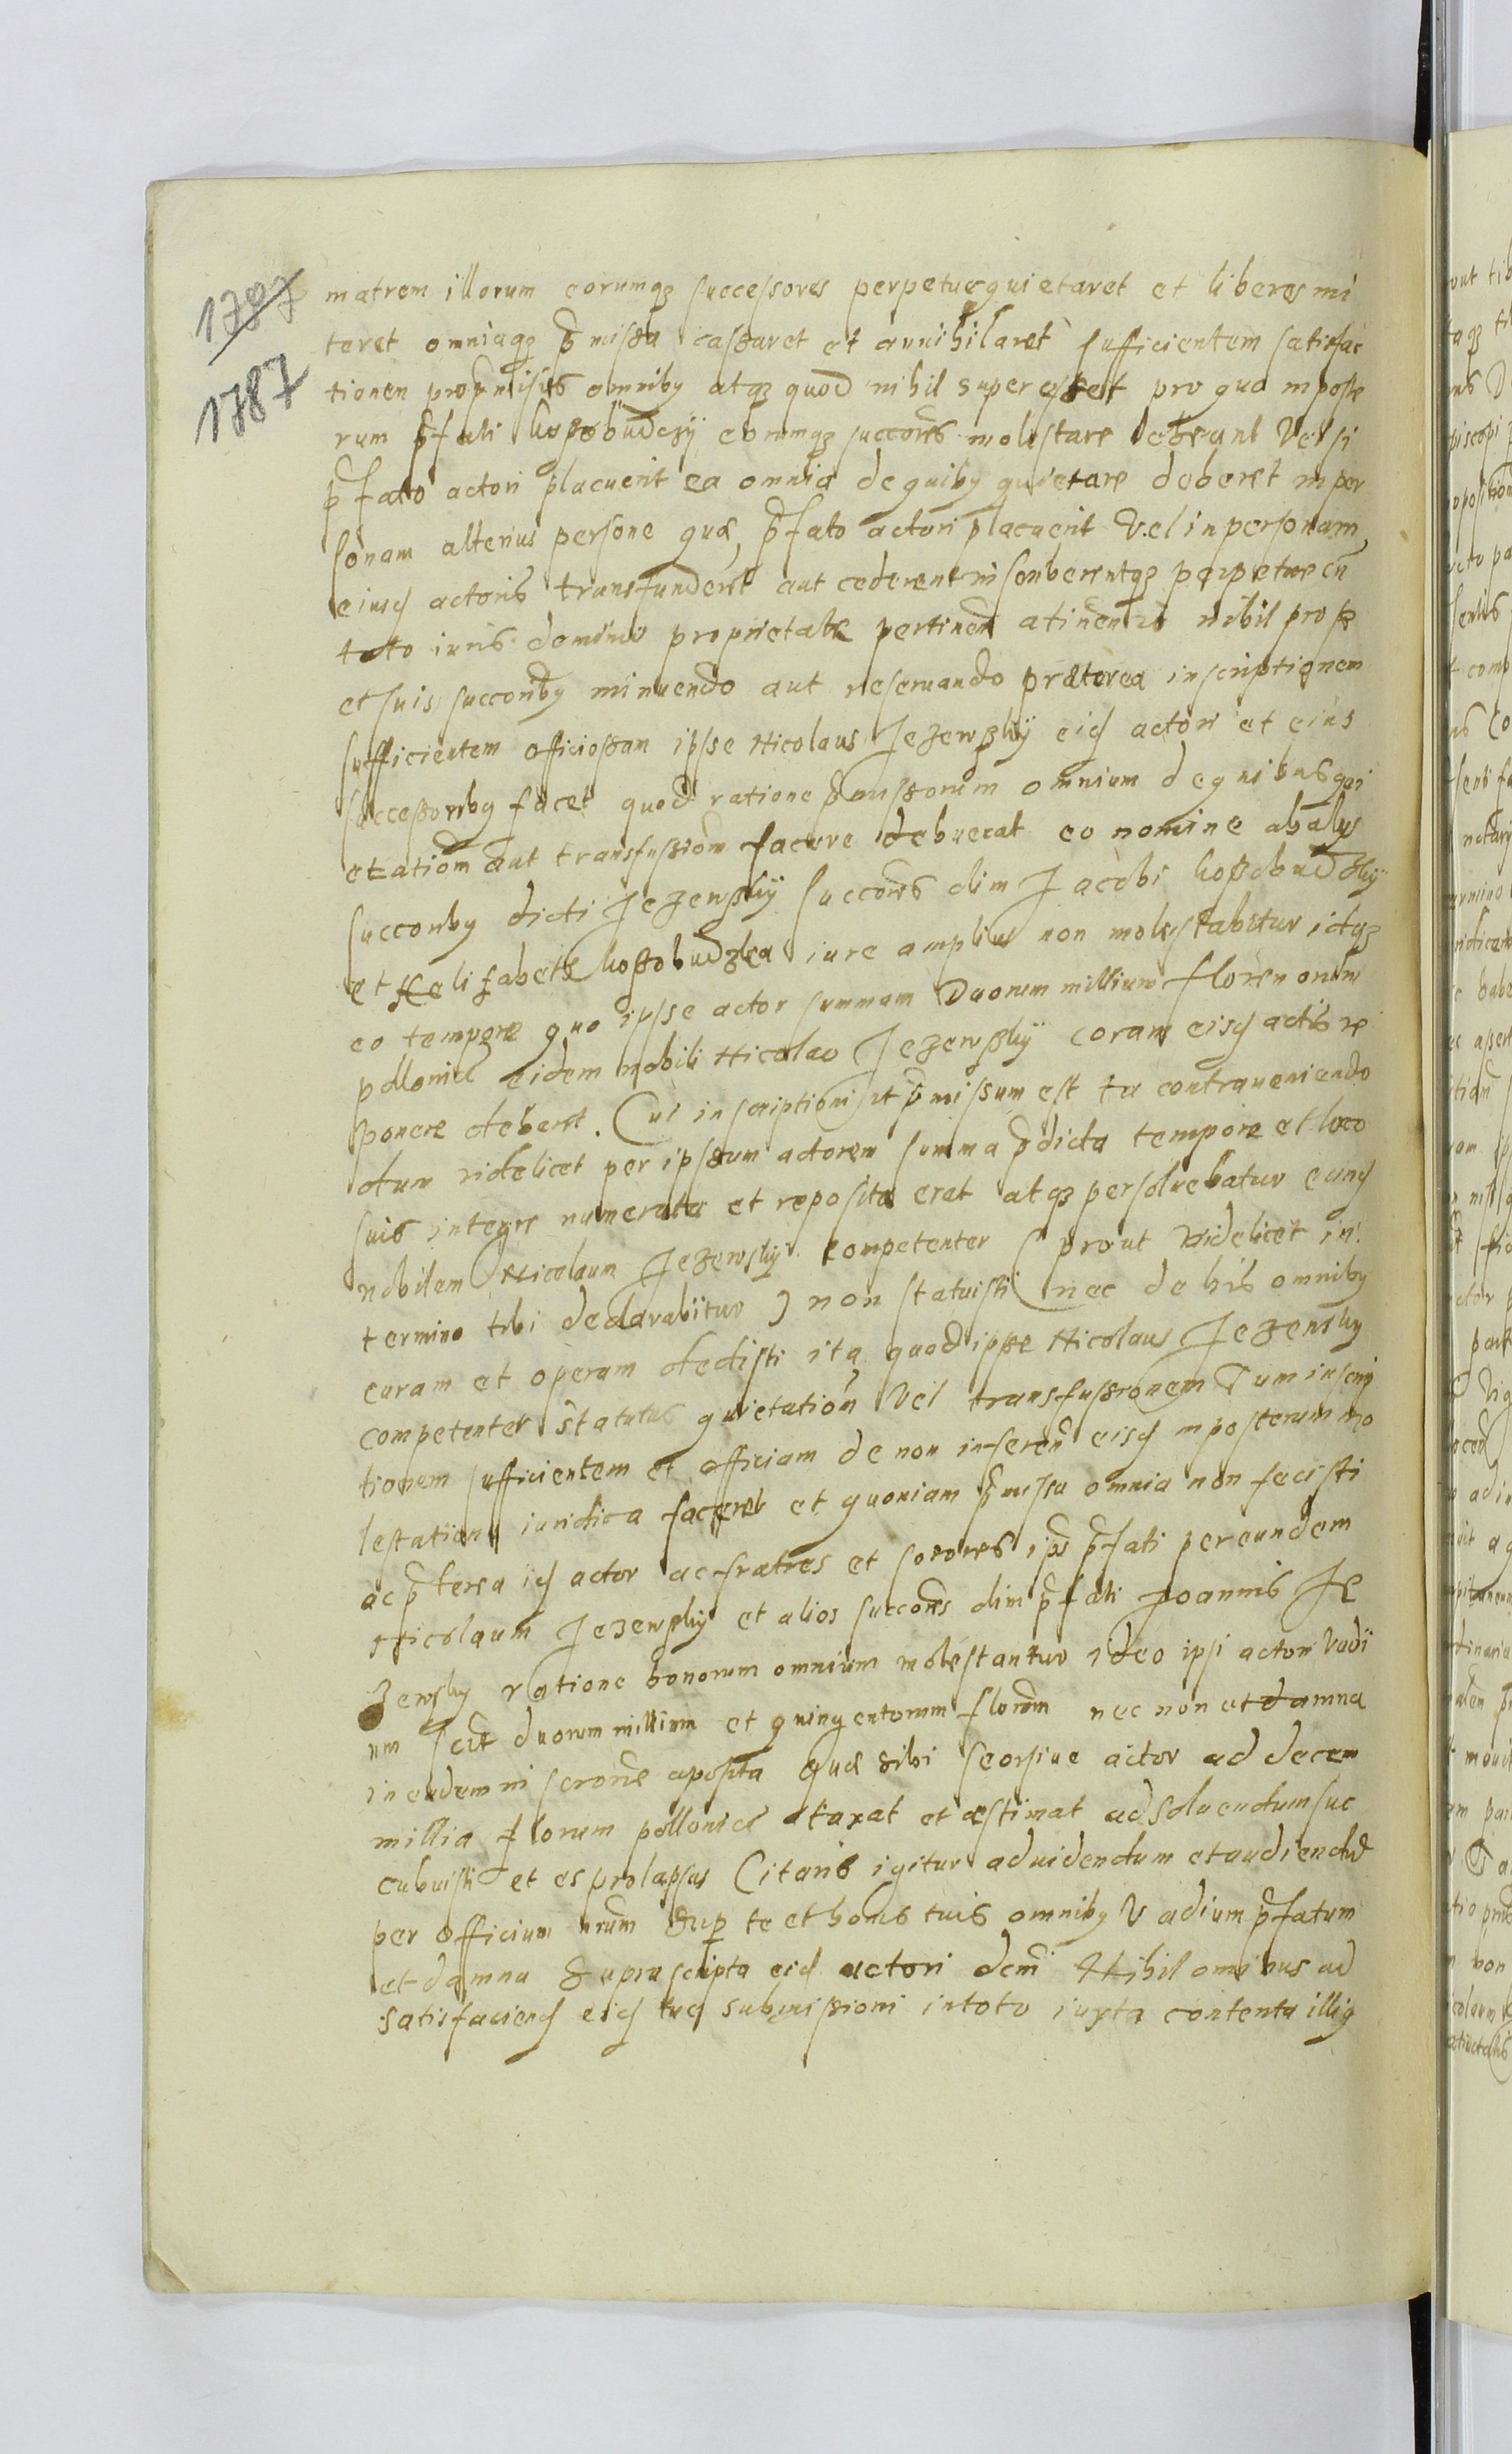 1787
1787
matrem illorum eorumqz successores perpetue quietaret et liberos mi
teret omniaqz p̄missa cassaret et annihilaret sufficientem satisfac
tionem pro p̄missis omniby atqz quod nihil superesset pro quo inposte
rum p̄fati kossobudczÿ eorumqz succōres molestare deberunt Vel si
p̄fato actori placuerit ea omnia de quiby quietare deberet in per
sonam alterius persone quæ p̄fato actori placuerit Vel in personam
eiusd actoris transfunderet aut cederent inscriberentqz perpetue cū
toto iuris dominio proprietate pertinen atinentiis nihil pro se
et suis succoriby minuendo aut reseruando præterea inscriptionem
sufficientem officiosam ipse Nicolaus JezewskÿÏ eid actori et eius
successoriby facet quod ratione p̄missorum omnium de quibus qui
etationē aut transfussionē facere debuerat eo nomine ab alijs
succoriby dicti Jezewskÿ succōres olim Jacobi kossobudzkÿ
et Helisabethe kossobudzka iure amplius non molestabitur idqz
eo tempore quo ipse actor summam Duorum millium florenorum
pollonicl eidem nobili Nicolao Jezewskÿ coram eisd actis re
ponere deberet. Cui inscriptioni ut p̄missum est tu contraueniendo
dum videlicet per ipsum actorem summa p̄dicta tempore et loco
suis integre numerata et reposita erat atqz persoluebatur eund
nobilem Nicolaum Jezewskÿ competenter (prout videlicet in
termino tibi declarabitur) non statuisti nec de his omniby
curam et operam dedisti ita quod ipse Nicolaus Jezewsky
competenter statutus quietationē Vel transfussionem Tum inscrip
tionem sufficientem et officiam de non inferen eisd inposterum mo
lestationi iuridica faceret et quoniam p̄missa omnia non fecisti
ac p̄terea id actor ac fratres et sorores ips p̄fati per eundem
Nicolaum Jezewskÿ et alios succōres olim p̄fati Joannis Je
zewsky ratione bonorum omnium molestantur ideo ipsi actori Vadi
um scilt duorum millium et quingentorum florm nec non et damna
in eadem inscrōne aposita quæ sibi seorsiue actor ad decem
millia florum pollonicl taxat et æstimat ad soluendum suc
cubuisti et es prolapsus Citaris igitur ad uidendum et audiendū
per officium nrum sup te et bonis tuis omniby Vadium p̄fatum
et damna suprascripta eid actori dcmi Nihilominus ad
satisfaciend eisd tuæ submissioni in toto iuxta contenta illiq